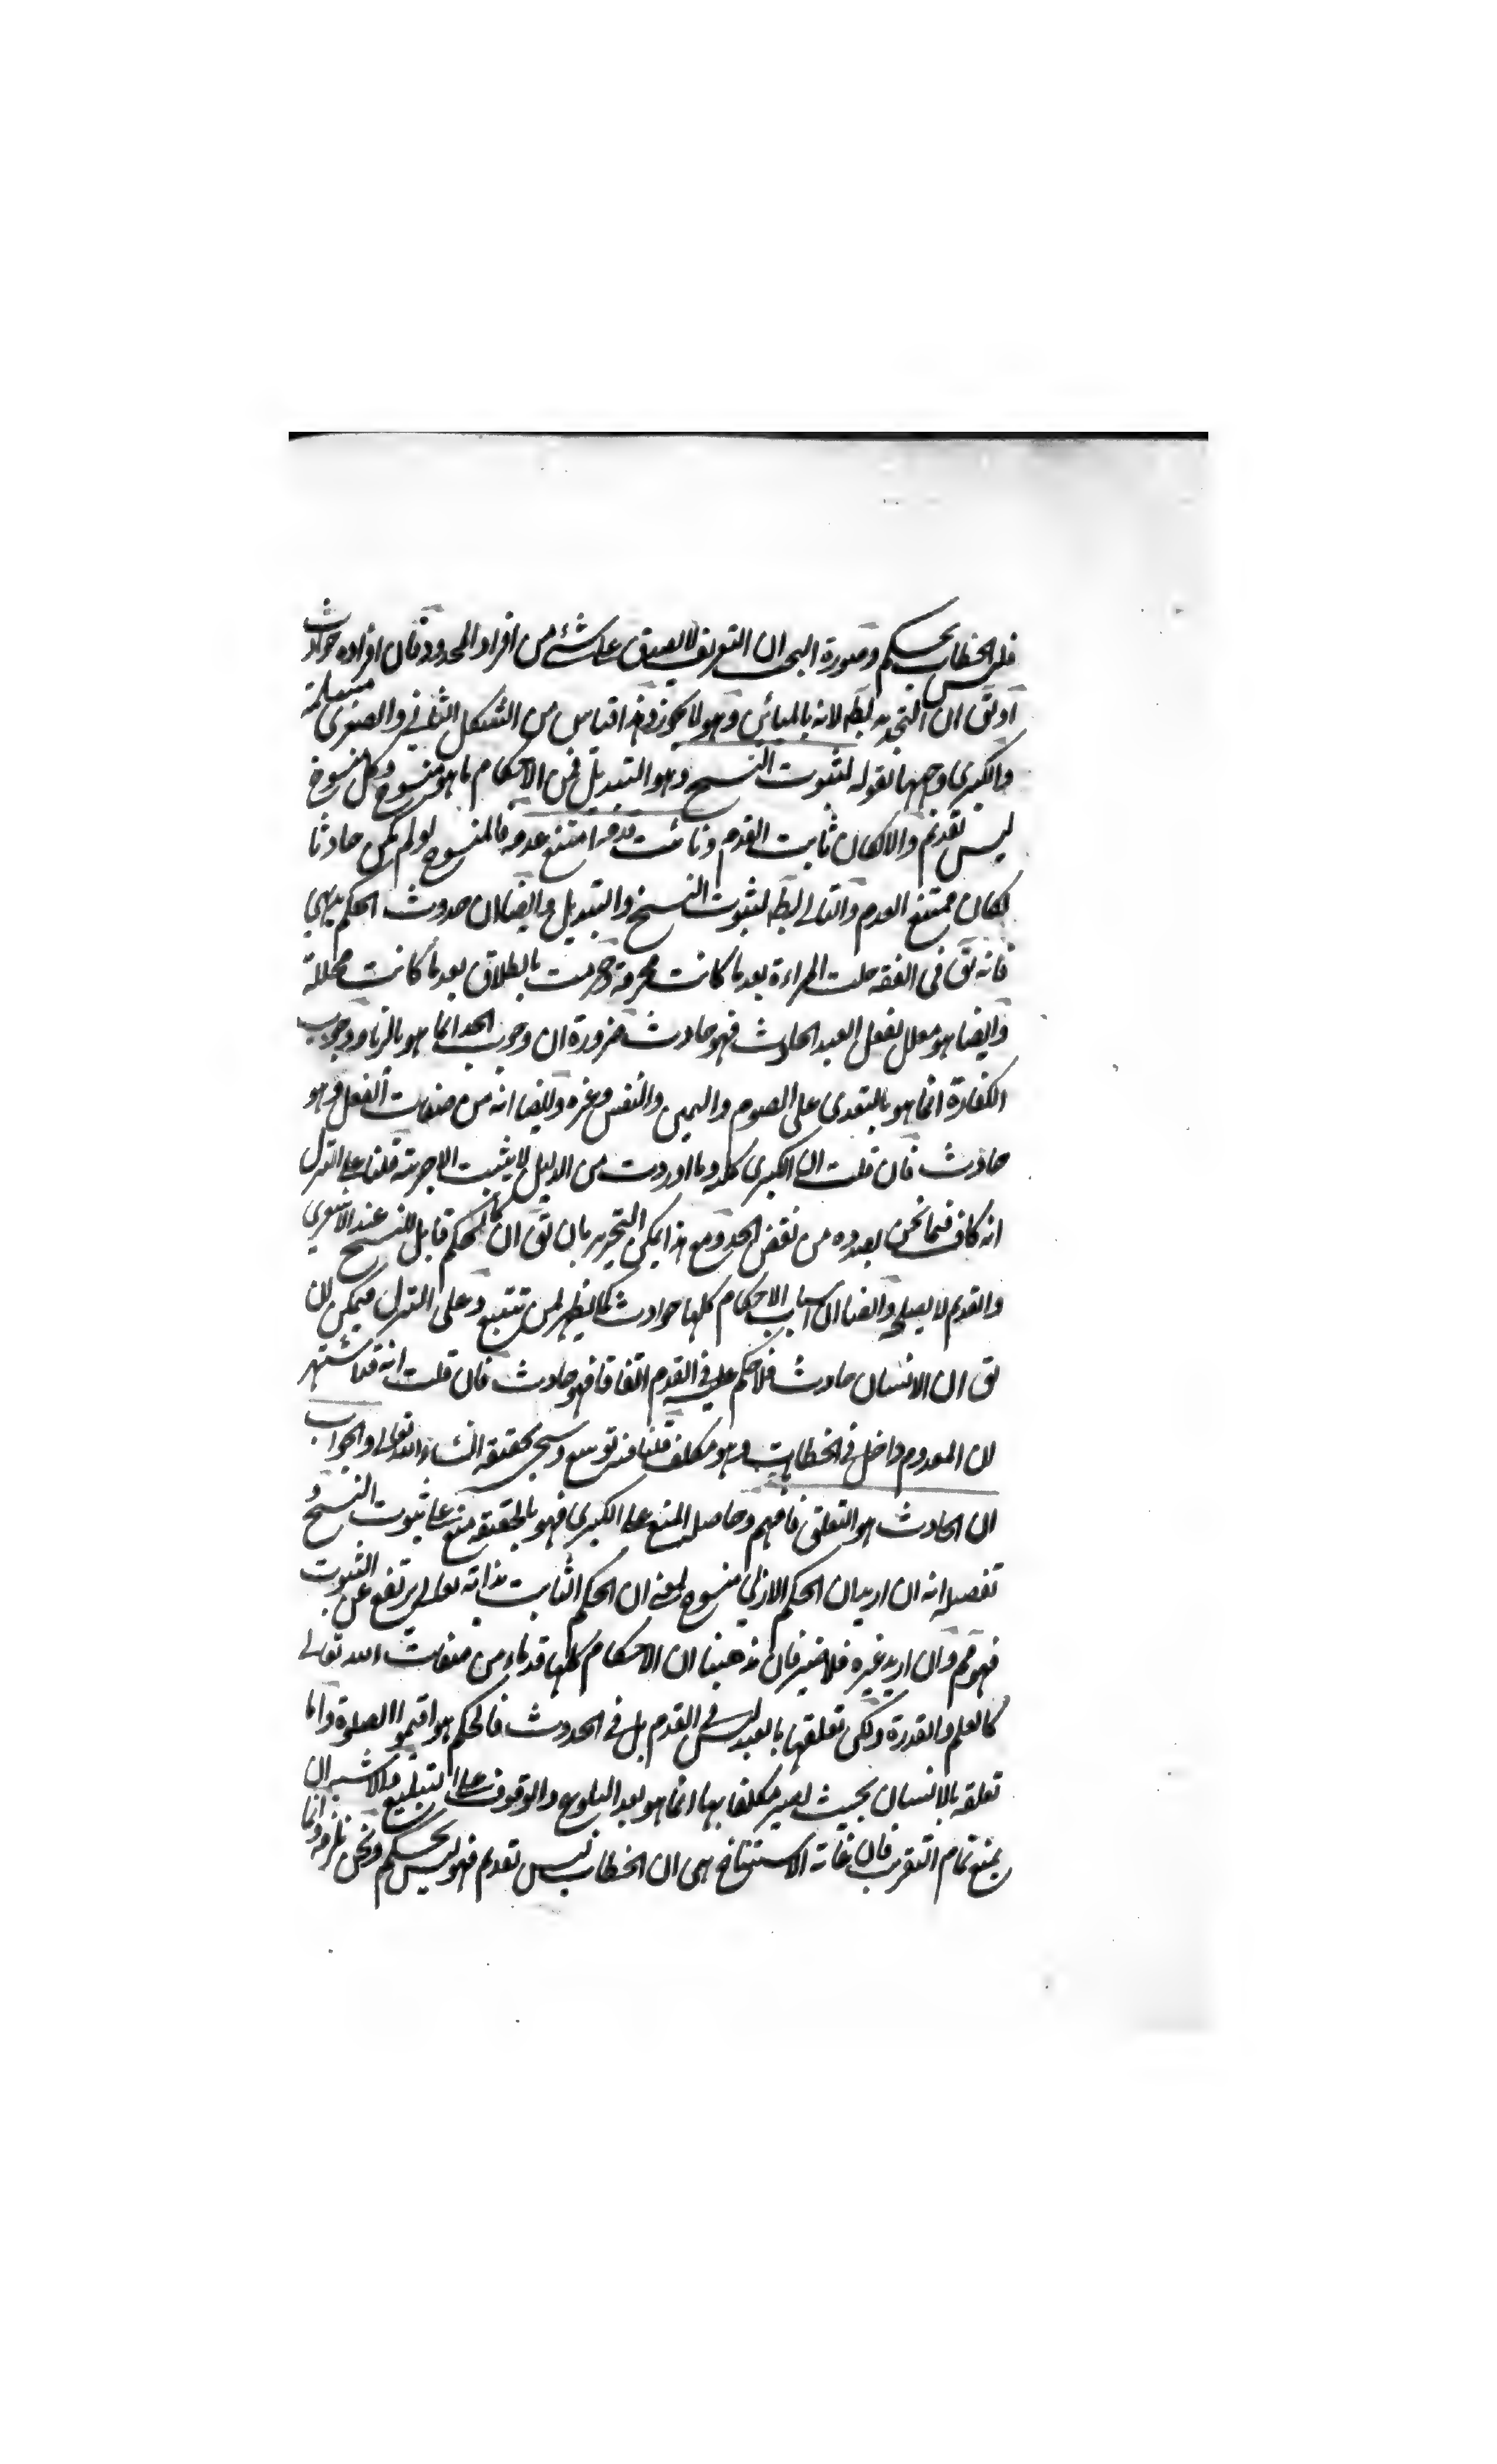 فليس الخطاب بحكم وصورة البحث ان التعريف لا يصدق على شئ من افراد المحدود فان افراده حوادث
او يق ان التحديد بط لانه بالمبائن وهو لا يجوز وهذا قياس من الشكل الثاني والصغرى مسلمة
والكبرى وجهها بقوله لثبوت النسخ وهو التبديل فمن الاحكام ما هو منسوخ وكل منسوخ
ليس بقديم والا لكان ثابت القدم وما ثبت قدمه امتنع عدمه فالمنسوخ لو لم يكن حادثا
لكان ممتنع العدم والتالي بط لثبوت النسخ والتبديل وايضا ان حدوث الحكم بديهي
فانه يق في الفقه حلت المراءة بعد ما كانت محرمة وحرمت بالطلاق بعد ما كانت محللة
وايضا هو معلل بفعل العبد الحادث فهو حادث ضرورة ان وجوب الحد انما هو بالزنا ووجوب
الكفارة انما هو بالتعدى على الصوم واليمين والنفس وغيره وايضا انه من صفات الفعل وهو
حادث فان قلت ان الكبرى كلية وما اوردت من الدليل لا يثبت الا جزئية قلنا على التنزل
انه كاف فيما نحن بصدده من نقض الحد ومع هذا يمكن التحرير بان يق ان كل حكم قابل للنسخ عند الاشعري
والقديم لا يصلح وايضا ان اسباب الاحكام كلها حوادث كما يظهر لمن تتبع وعلى التنزل فيمكن ان
يق ان الانسان حادث فلا حكم عليه في القدم اتفاقا فهو حادث فان قلت انه قد اشتهر
ان المعدوم داخل في الخطاب وهو مكلف قلنا فيه توسع وسيجئ تحقيقه انشاء الله تعالى والجواب
ان الحادث هو التعلق فافهم وحاصله المنع على الكبرى فهو بالحقيقة منع على ثبوت النسخ و
تفصيله انه ان اريد ان الحكم الازلي منسوخ بمعنى ان الحكم الثابت بذاته تعالى يرتفع عن الثبوت
فهو مم وان اريد غيره فلا ضير فان مذهبنا ان الاحكام كلها قدماء من صفات الله تعالى
كالعلم والقدرة ولكن تعلقها بالعبد ليس في القدم بل في الحدوث فالحكم هو اقيموا الصلوة واما
تعلقه بالانسان بحيث يصير مكلفا بها انما هو بعد البلوغ والوقوف على التبليغ والاشبه ان
يمنع تمام التقريب فان غاية الاستنتاج هي ان الخطاب ليس بقديم فهو ليس بحكم ونحن نلزمه وانما